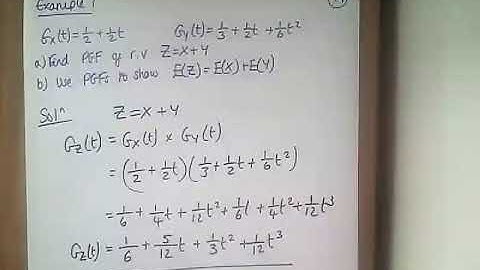 Example 1
Gx(t)=1/2+1/2t Gy(t)=1/3+1/2t+1/6t²
a) Find PGF of r.v Z=X+Y
b) Use PGFs to show E(Z)=E(X)+E(Y)
Solⁿ Z=X+Y
Gz(t)=Gx(t)×Gy(t)
=(1/2+1/2t)(1/3+1/2t+1/6t²)
=1/6+1/4t+1/12t²+1/6t+1/4t²+1/12t³
Gz(t)=1/6+5/12t+1/3t²+1/12t³